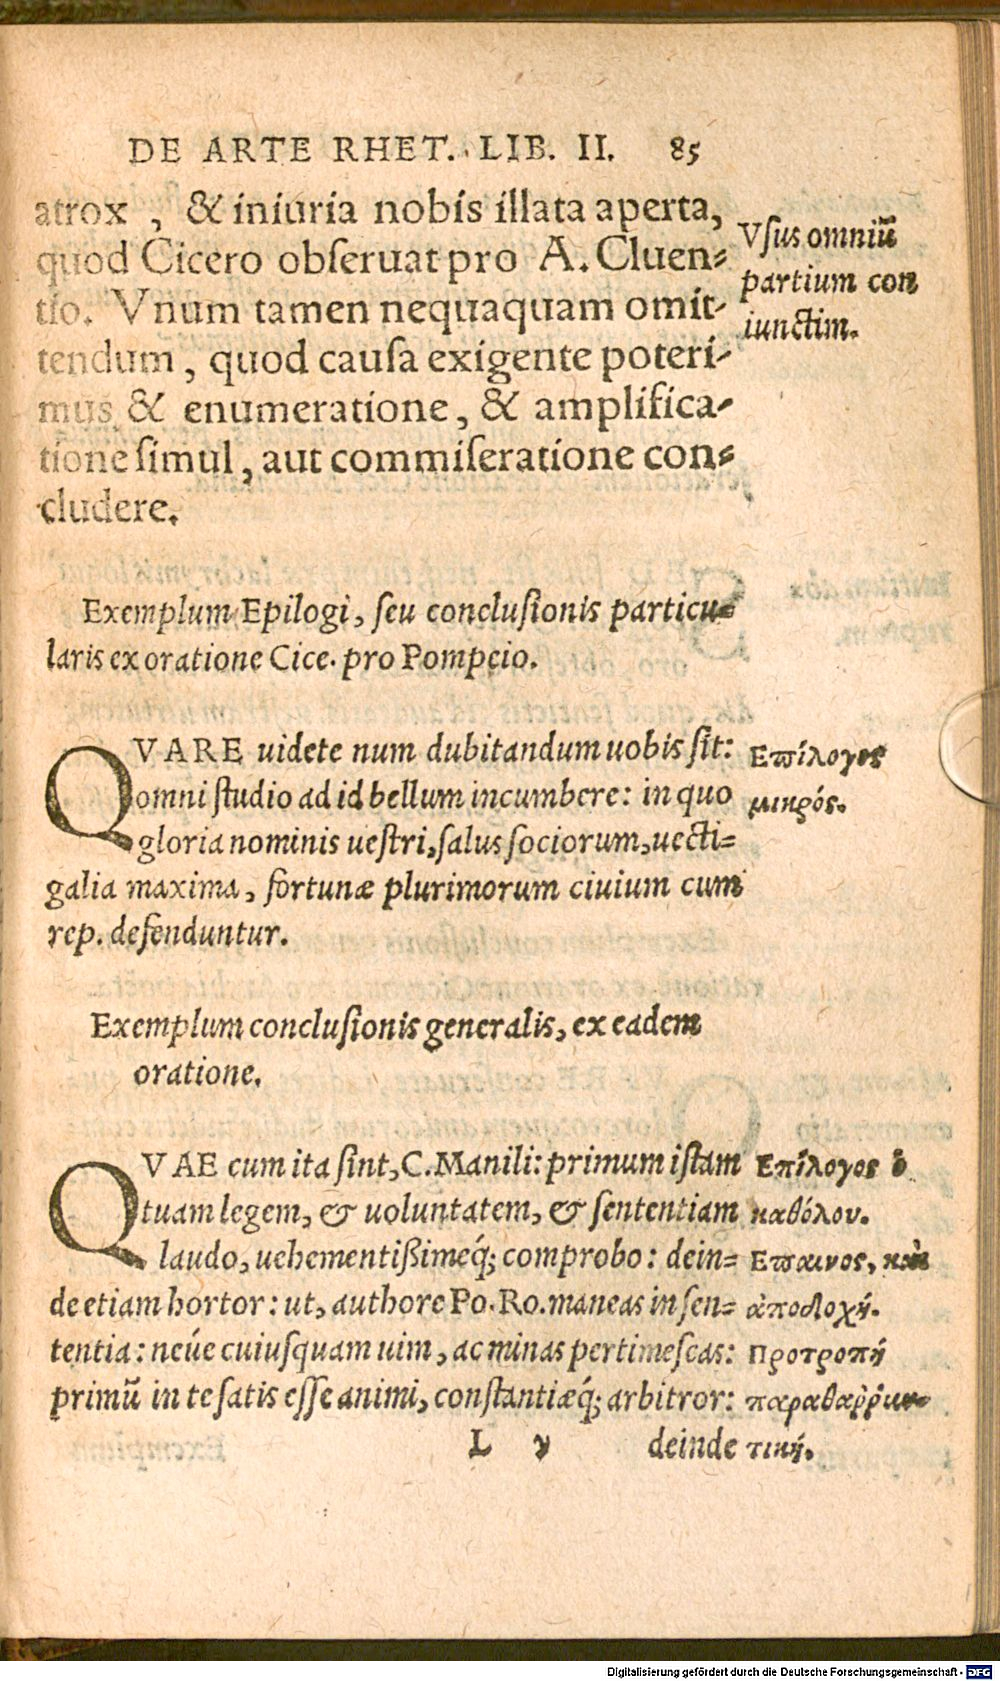 DE ARTE RHET. LIB. II. 85
atrox , & iniuria nobis illata aperta,
quod Cicero obſeruat pro A. Cluen-
tio. Vnum tamen nequaquam omit-
tendum, quod cauſa exigente poteri-
mus & enumeratione, & amplifica-
tione ſimul, aut commiſeratione con-
cludere.
Vſus omniũ
partium con
iunctim.
Exemplum Epilogi, ſeu concluſionis particu-
laris ex oratione Cice. pro Pompeio.
QVARE uidete num dubitandum uobis ſit:
omni ſtudio ad id bellum incumbere: in quo
gloria nominis ueſtri, ſalus ſociorum, uecti-
galia maxima, fortunæ plurimorum ciuium cum
rep. defenduntur.
Επίλογος
μικρός.
Exemplum concluſionis generalis, ex eadem
oratione.
QVAE cum ita ſint, C. Manili: primum iſtam
tuam legem, & uoluntatem, & ſententiam
laudo, uehementißimeq́; comprobo: dein-
de etiam hortor: ut, authore Po. Ro. maneas in ſen-
tentia: neúe cuiuſquam uim, ac minas pertimeſcas:
primũ in te ſatis eſſe animi, conſtantiæq́; arbitror:
Επίλογος ὁ
καθόλου.
Επαινος, καὶ
ἀποδοχή.
Προτροπή
παραθαῤῥυν-
τική.
L v deinde
Digitalisierung gefördert durch die Deutsche Forschungsgemeinschaft - DFG